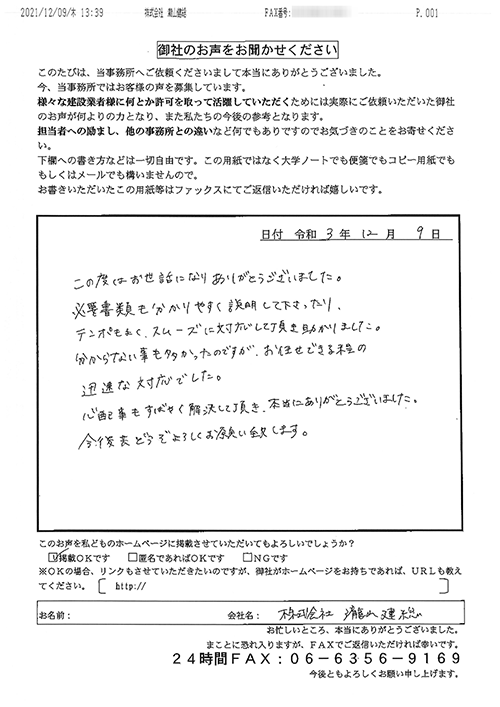 2021/12/09/木 13:39 株式会社 瀧山建総 FAX番号: P.001
御社のお声をお聞かせください
このたびは、当事務所へご依頼くださいまして本当にありがとうございました。
今、当事務所ではお客様の声を募集しています。
様々な建設業者様に何とか許可を取って活躍していただくためには実際にご依頼いただいた御社
のお声が何よりの力となり、また私たちの今後の参考となります。
担当者への励まし、他の事務所との違いなど何でもありですのでお気づきのことをお寄せくださ
い。
下欄への書き方などは一切自由です。この用紙ではなく大学ノートでも便箋でもコピー用紙でも
もしくはメールでも構いませんので。
お書きいただいたこの用紙等はファックスにてご返信いただければ嬉しいです。
日付 令和 3 年 12 月 9 日
この度はお世話になりありがとうございました。
必要書類も分かりやすく説明して下さったり、
テンポもよく、スムーズに対応して頂き助かりました。
分からない事も多かったのですが、お任せできる程の
迅速な対応でした。
心配事もすばやく解決して頂き、本当にありがとうございました。
今後共どうぞよろしくお願い致します。
このお声を私どものホームページに掲載させていただいてもよろしいでしょうか?
☑掲載OKです □匿名であればOKです □NGです
※OKの場合、リンクもさせていただきたいのですが、御社がホームページをお持ちであれば、URLも教え
てください。 [ http:// ]
お名前: 会社名: 株式会社 瀧山建総
お忙しいところ、本当にありがとうございました。
まことに恐れ入りますが、FAXでご返信いただければ幸いです。
24時間FAX:06-6356-9169
今後ともよろしくお願い申し上げます。